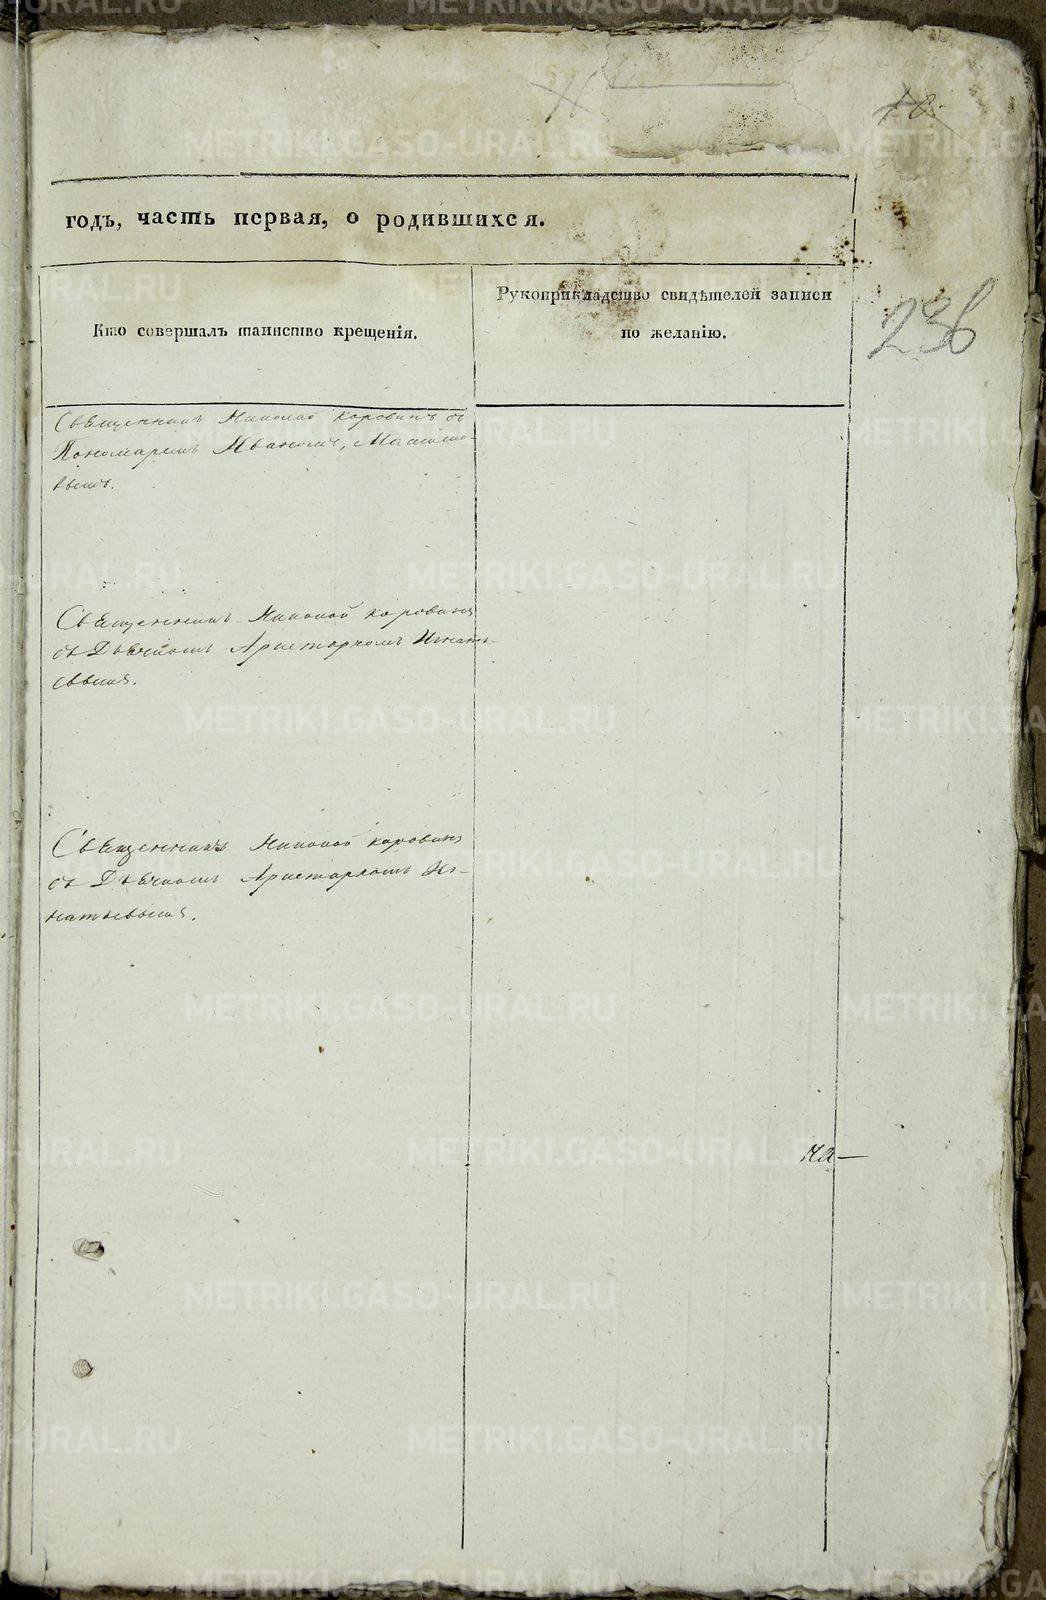 236
годъ, часть первая, о родившихся.
Кто совершалъ таинство крещенія.
Рукоприкладство свидѣтелей записи
по желанію.
Священникъ Николай Коровинъ съ
Пономаремъ Иваномъ
вымъ.
Священникъ Николай Коровинъ
съ Дьячкомъ Аристархомъ Игнать-
евымъ.
Священникъ Николай Коровинъ
съ Дьячкомъ Аристархомъ Иг-
натьевымъ.
METRIKI.GASO-URAL.RU